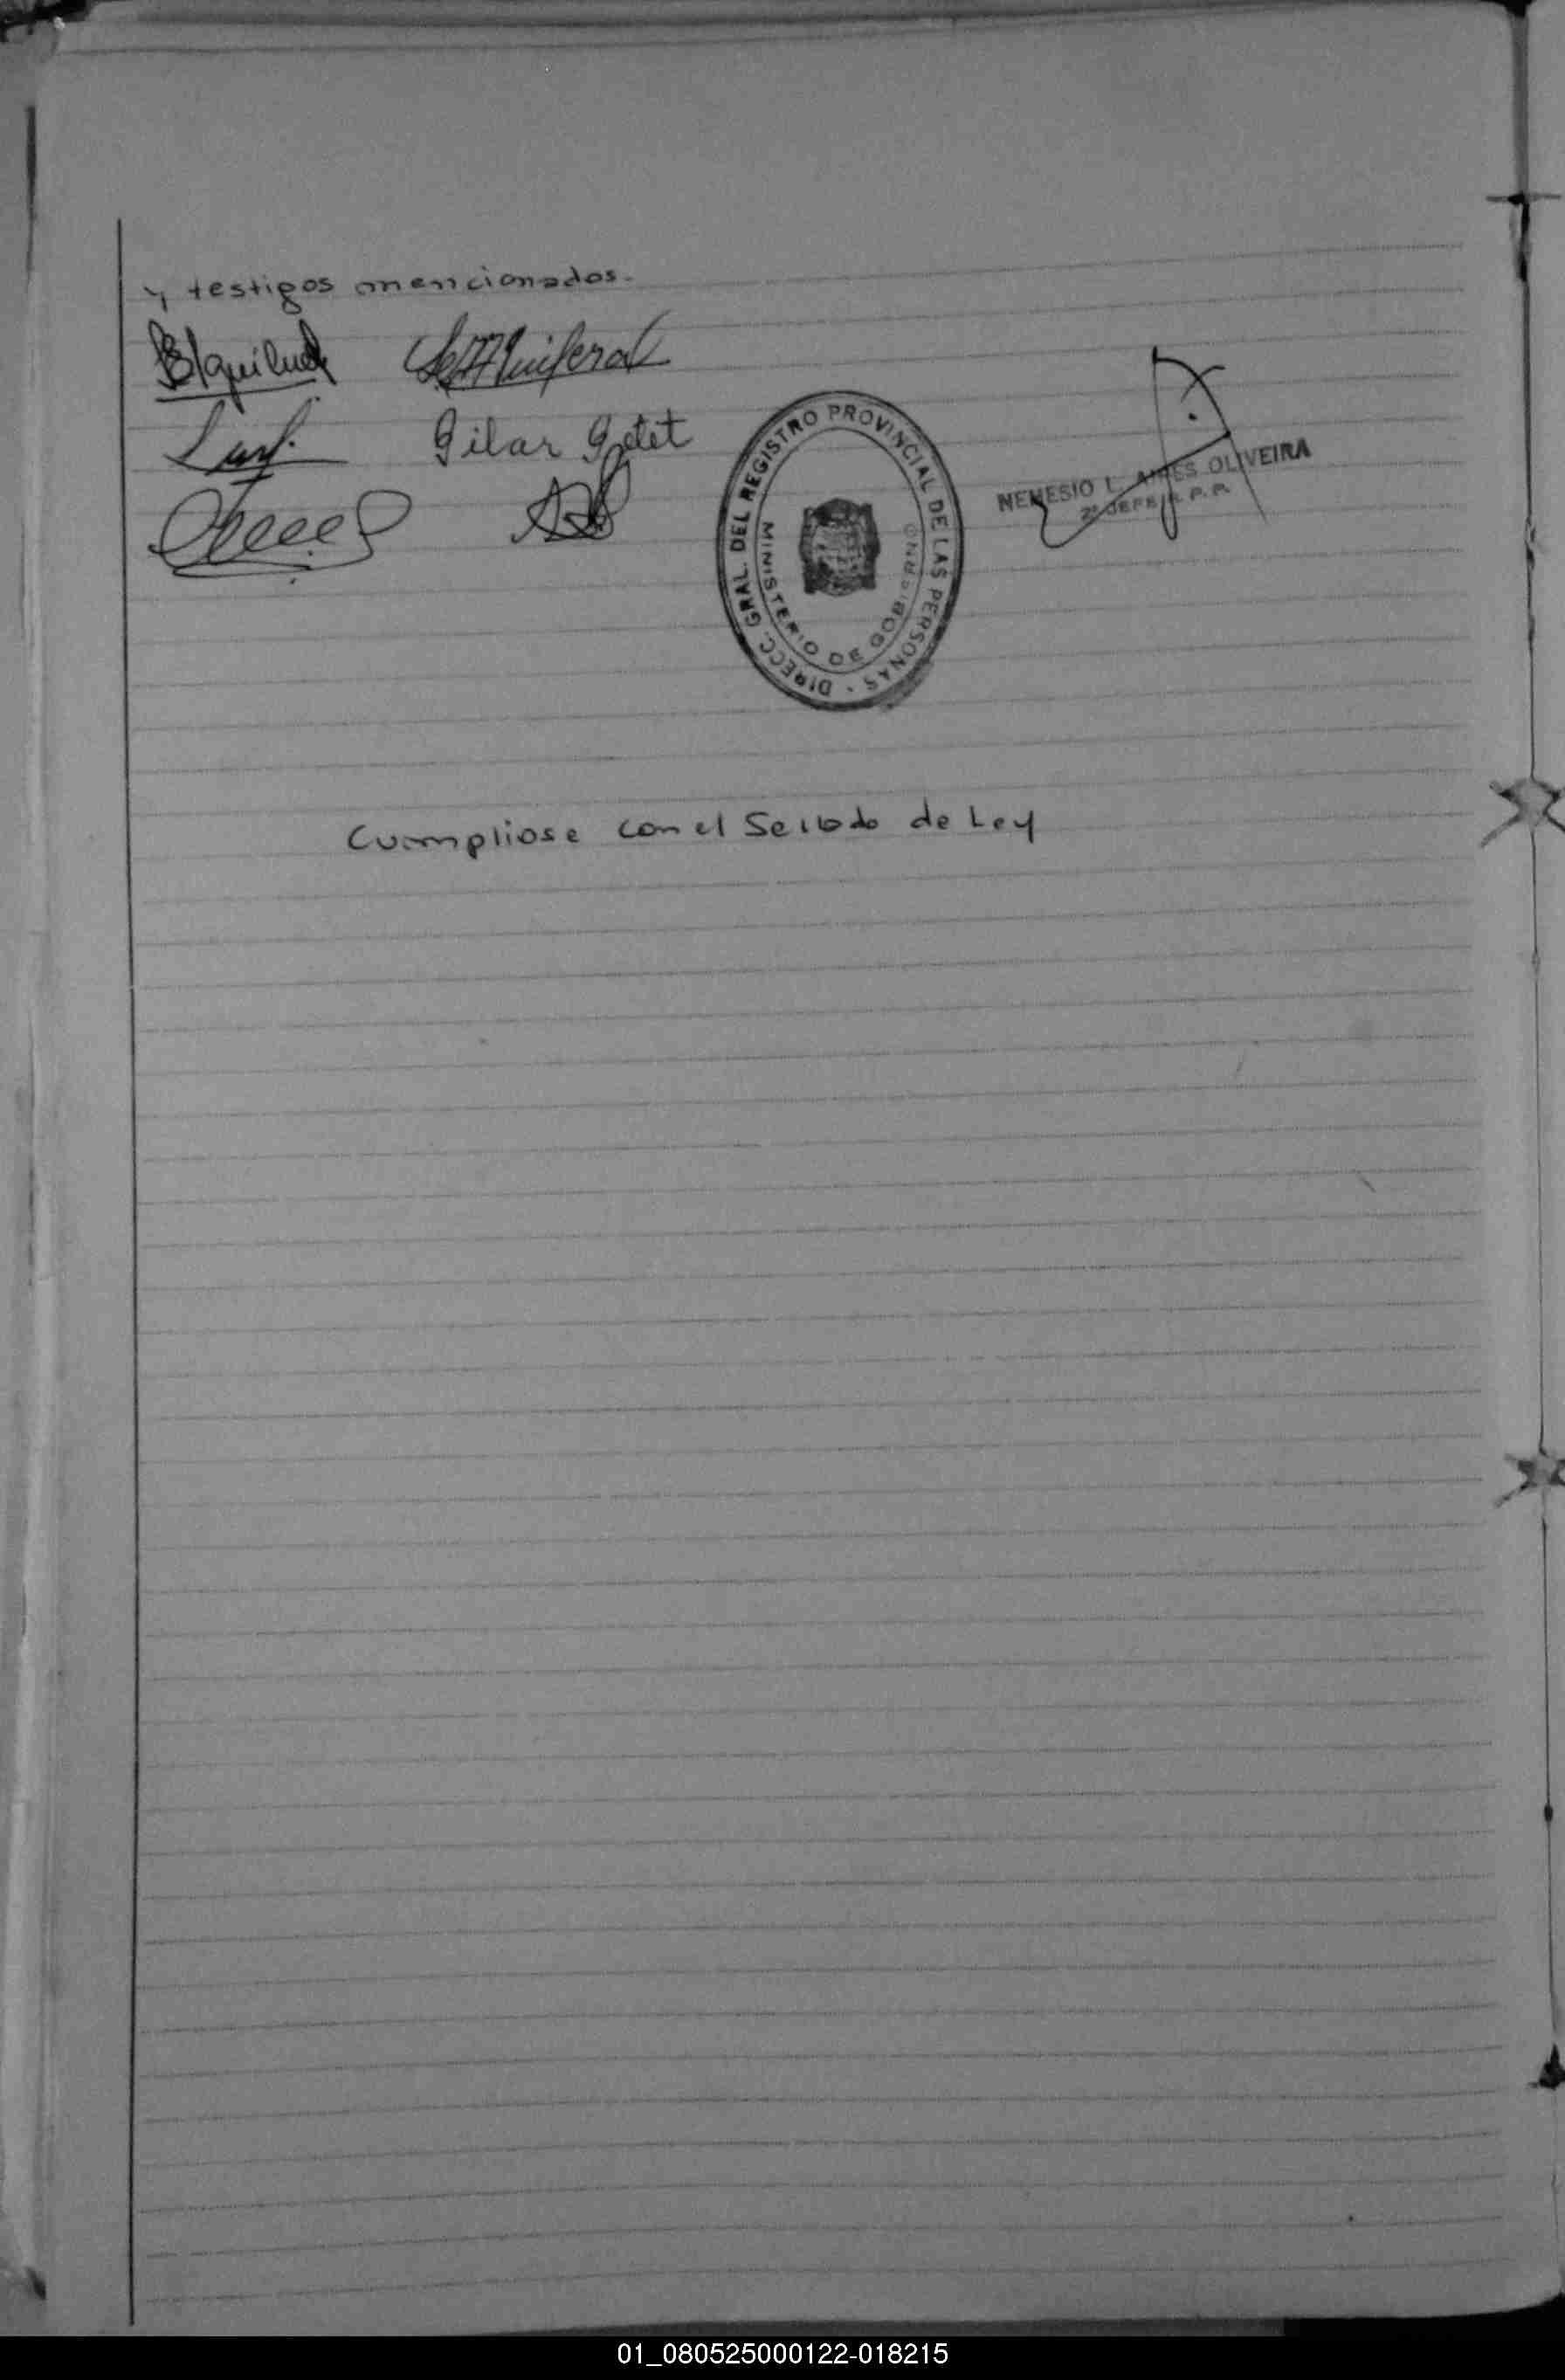 y testigos mencionados.
Pilar Gatet
DIRECC. GRAL. DEL REGISTRO PROVINCIAL DE LAS PERSONAS -
MINISTERIO DE GOBIERNO
NEMESIO L. AIRES OLIVEIRA
2º JEFE R. P. P.
Cumpliose con el Sellado de Ley
01_080525000122-018215